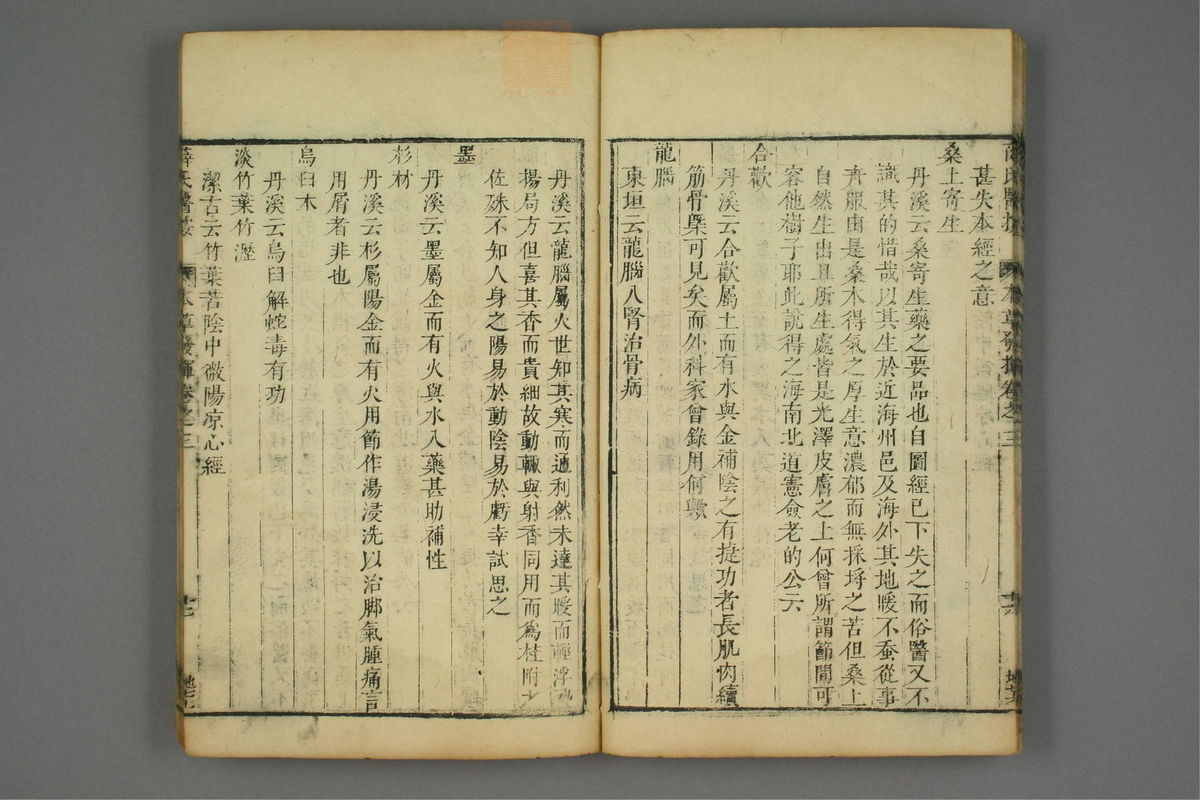 甚失本經之意
桑上寄生
丹溪云桑寄生藥之要品也自圖經已下失之而俗醫又不
識其的惜哉以其生於近海州邑及海外其地暖不蚕從事
弁服由是桑木得氣之厚生意濃郁而無採捋之苦但桑上
自然生出且所生處皆是光澤皮膚之上何曾所謂節間可
容他樹子耶此說得之海南北道憲僉老的公云
合歡
丹溪云合歡屬土而有水與金補陰之有捷功者長肌肉續
筋骨槩可見矣而外科家曾錄用何歟
龍腦
東垣云龍腦入腎治骨病
丹溪云龍腦屬火世知其寒而通利然未達其暖而輕浮
揚局方但喜其香而貴細故動輒與射香同用而爲桂附之
佐殊不知人身之陽易於動陰易於虧幸試思之
墨
丹溪云墨屬金而有火與水入藥甚助補性
杉材
丹溪云杉屬陽金而有火用節作湯浸洗以治脚氣腫痛言
用屑者非也
烏臼木
丹溪云烏臼解蛇毒有功
淡竹葉竹瀝
潔古云竹葉苦陰中微陽凉心經
薛氏醫按 本草發揮卷之三